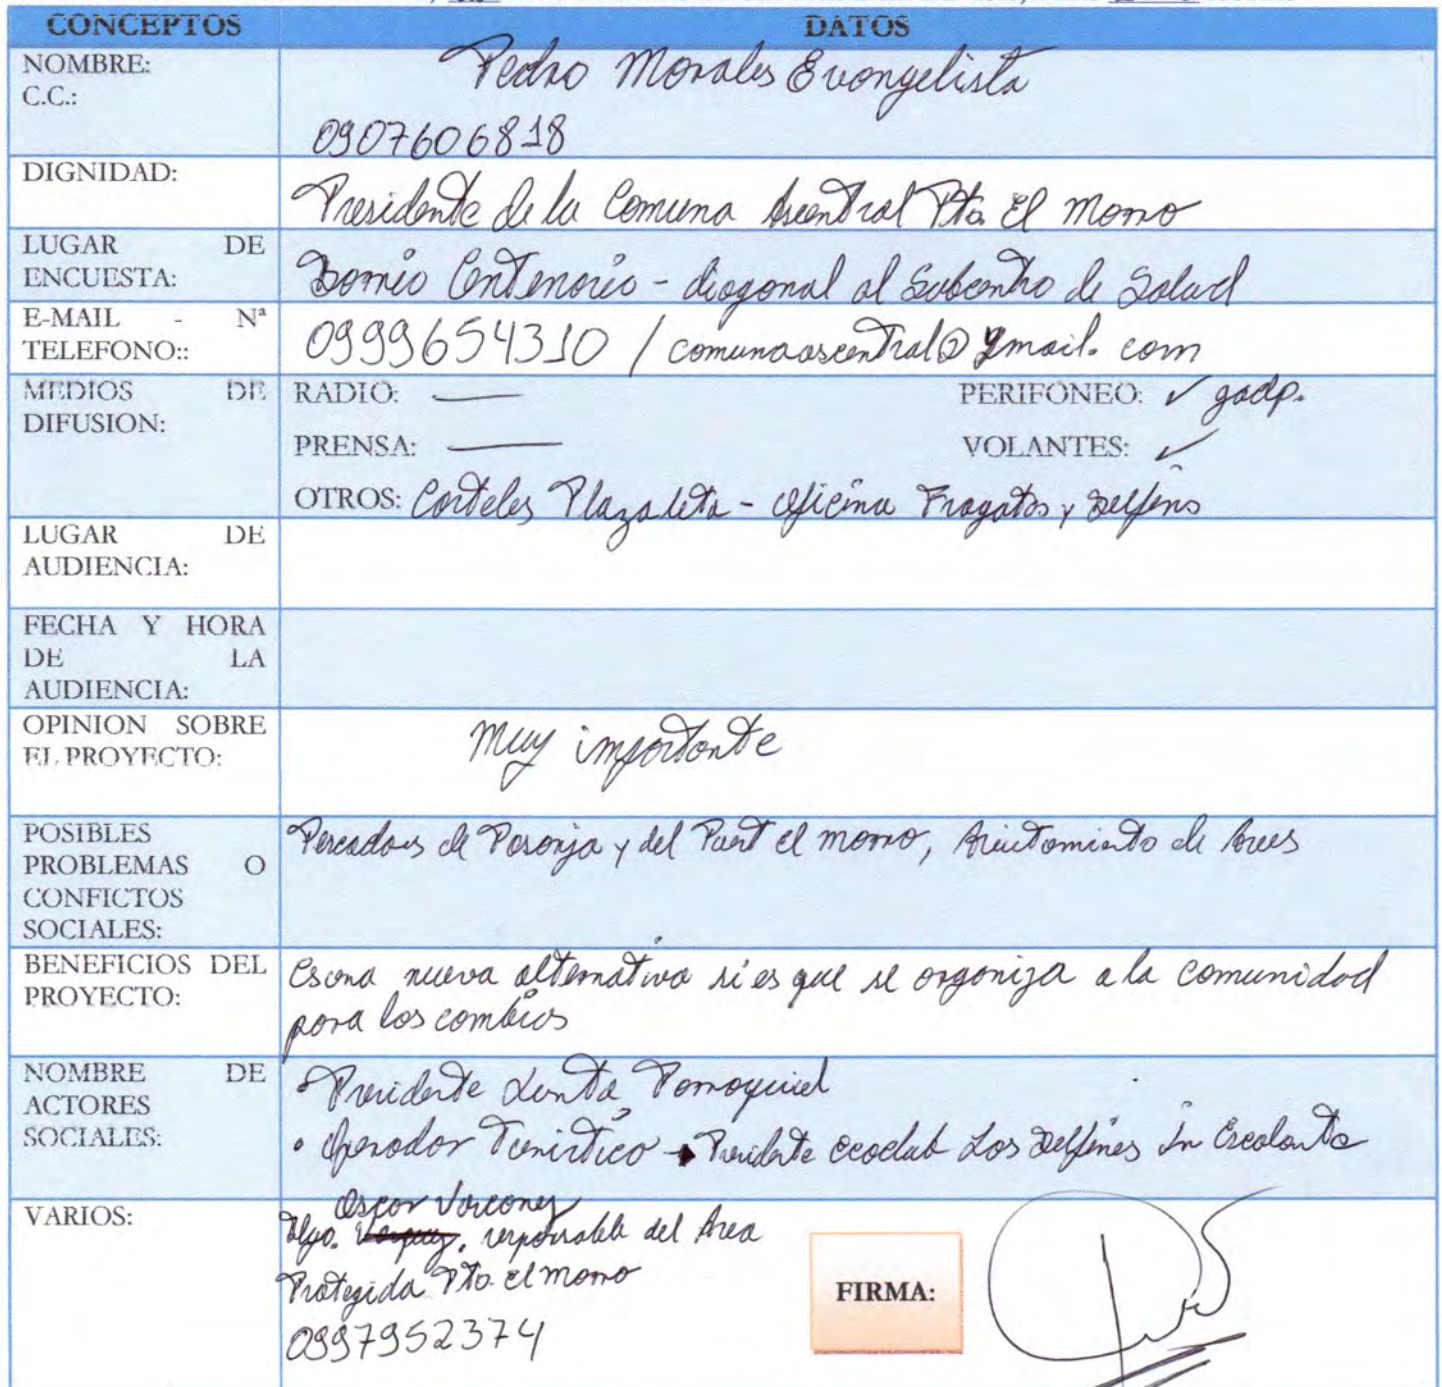 CONCEPTOS DATOS
NOMBRE: Pedro Morales Evangelista
C.C.: 0907606818
DIGNIDAD: Presidente de la Comuna Ascentral Pto. El Morro
LUGAR DE ENCUESTA: Barrio Centenario - diagonal al Subcentro de Salud
E-MAIL - Nª TELEFONO:: 0999654310 / comunaascentral@gmail.com
MEDIOS DE DIFUSION: RADIO: — PERIFONEO: ✓ gadp.
PRENSA: — VOLANTES: ✓
OTROS: Carteles Plazoleta - oficina Fragatas y Delfins
LUGAR DE AUDIENCIA:
FECHA Y HORA DE LA AUDIENCIA:
OPINION SOBRE EL PROYECTO: Muy importante
POSIBLES PROBLEMAS O CONFICTOS SOCIALES: Pescadores de Posorja y del Puert el morro, de Aves
BENEFICIOS DEL PROYECTO: Es una nueva alternativa si es que se organiza a la comunidad
para los cambios
NOMBRE DE ACTORES SOCIALES: • Presidente Junta Parroquial
• Operador Turistico → Presidente ecoclub Los Delfines Escalante
Oscar
VARIOS: responsable del Area
Protegida Pto. el morro
0997952374
FIRMA: